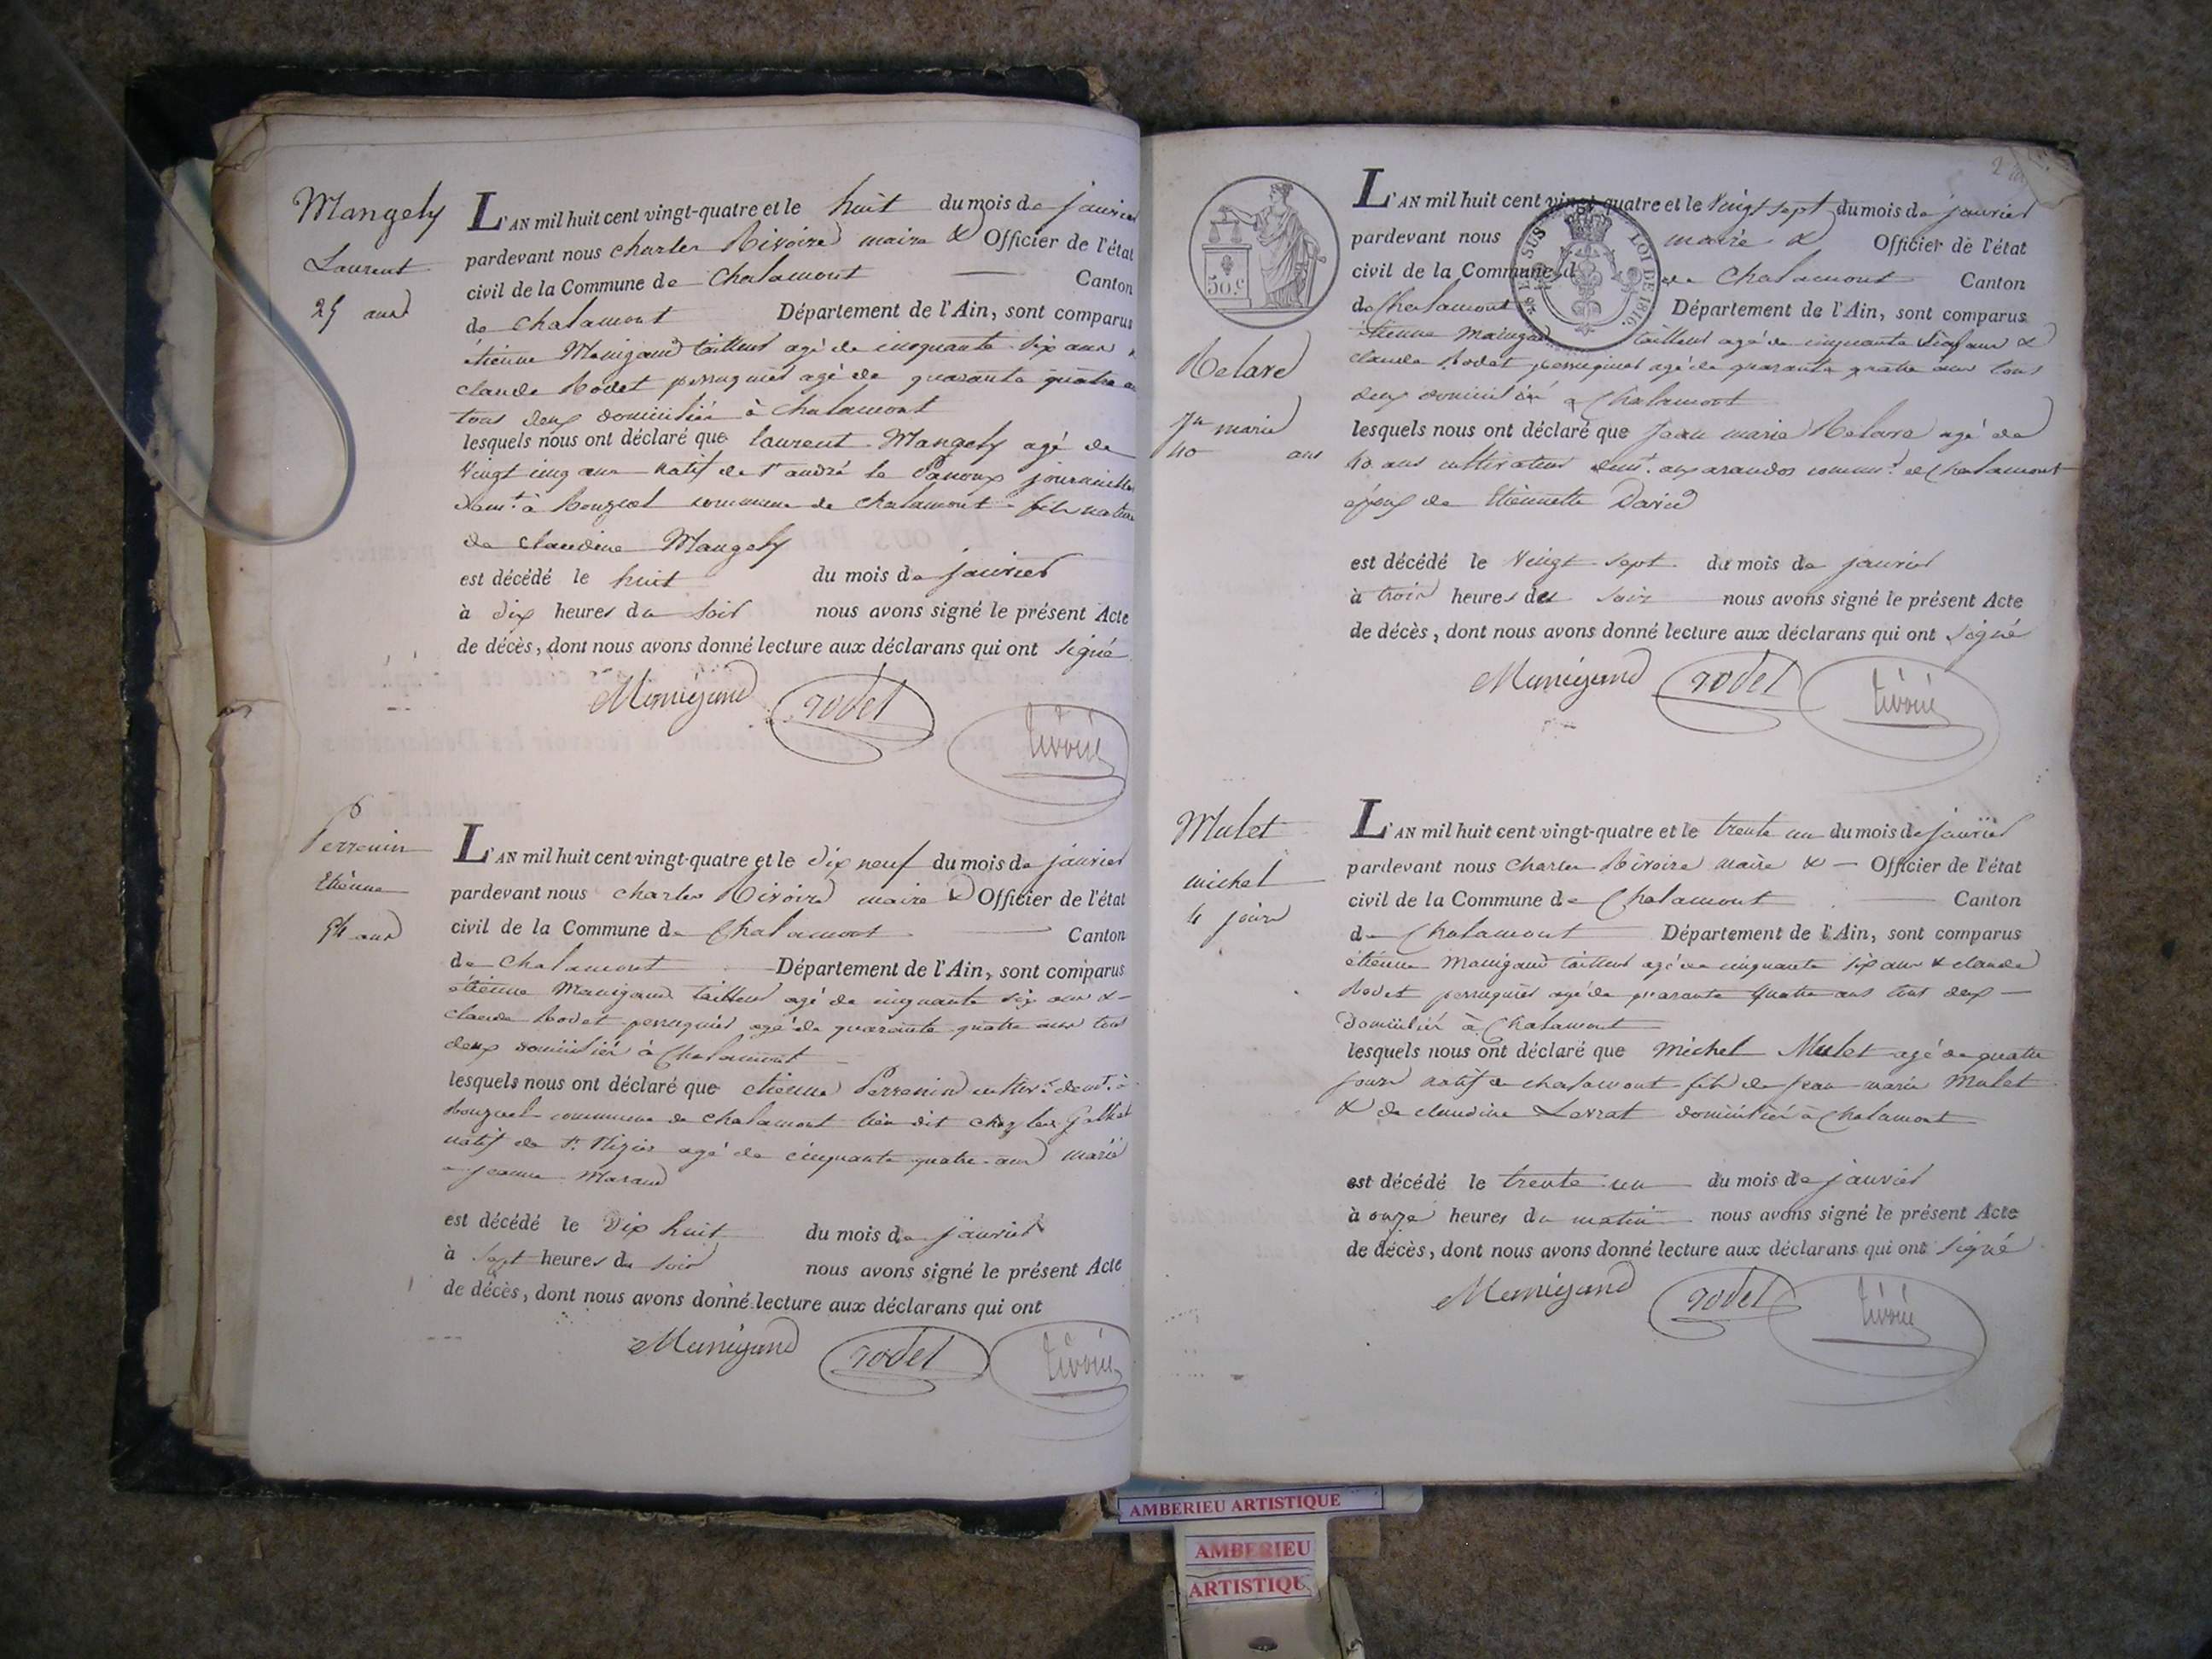 Mangely
Laurent
25 ans
L'AN mil huit cent vingt-quatre et le huit du mois de janvier
pardevant nous charles Rivoire maire & Officier de l'état
civil de la Commune de Chalamont Canton
de Chalamont Département de l'Ain, sont comparus
étienne Manigand tailleur agé de cinquante six ans
claude Rodet perruquier agé de quarante quatre
tous deux domiciliés à Chalamont
lesquels nous ont déclaré que laurent Mangely agé de
Vingt cinq ans natif de St andré le Panoux journalier
à commune de Chalamont fils
de claudine Mangely
est décédé le huit du mois de janvier
à dix heures du soir nous avons signé le présent Acte
de décès, dont nous avons donné lecture aux déclarans qui ont signé
Manigand rodet
Perrenin
Etienne
54 ans
L'AN mil huit cent vingt-quatre et le dix neuf du mois de janvier
pardevant nous charles Rivoire maire & Officier de l'état
civil de la Commune de Chalamont Canton
de Chalamont Département de l'Ain, sont comparus
étienne Manigand tailleur agé de cinquante six ans &
claude Rodet perruquier agé de quarante quatre ans tous
deux domiciliés à Chalamont
lesquels nous ont déclaré que etienne Perrenin à
commune de Chalamont lieu dit chez les
natif de St. agé de cinquante quatre ans marié
a jeanne
est décédé le Dix huit du mois de janvier
à sept heures du soir nous avons signé le présent Acte
de décès, dont nous avons donné lecture aux déclarans qui ont
Manigand rodet
50.c
EN SUS LOI DE 1816.
Relave
Jn marie
40 ans
L'AN mil huit cent vingt-quatre et le Vingt sept du mois de janvier
pardevant nous maire & Officier de l'état
civil de la Commune de Chalamont Canton
de Chalamont Département de l'Ain, sont comparus
étienne Manigand tailleur agé de cinquante six ans &
claude Rodet perruquier agé de quarante quatre ans tous
deux domiciliés à Chalamont
lesquels nous ont déclaré que Jean marie Relave agé de
40 ans cultivateur de Chalamont
époux de Etiennette David
est décédé le Vingt sept du mois de janvier
à trois heures du soir nous avons signé le présent Acte
de décès, dont nous avons donné lecture aux déclarans qui ont signé
Manigand rodet
Mulet
michel
4 jours
L'AN mil huit cent vingt-quatre et le trente un du mois de janvier
pardevant nous Charles Rivoire maire & Officier de l'état
civil de la Commune de Chalamont Canton
de Chalamont Département de l'Ain, sont comparus
étienne Manigand tailleur agé de cinquante six ans & claude
Rodet perruquier agé de quarante quatre ans tous deux
Domiciliés à Chalamont
lesquels nous ont déclaré que Michel Mulet agé de quatre
jours natif de chalamont fils de jean marie Mulet
& de claudine Lerrat domiciliés à Chalamont
est décédé le trente un du mois de janvier
à onze heures du matin nous avons signé le présent Acte
de décès, dont nous avons donné lecture aux déclarans qui ont signé
Manigand rodet
AMBERIEU ARTISTIQUE
AMBERIEU
ARTISTIQU